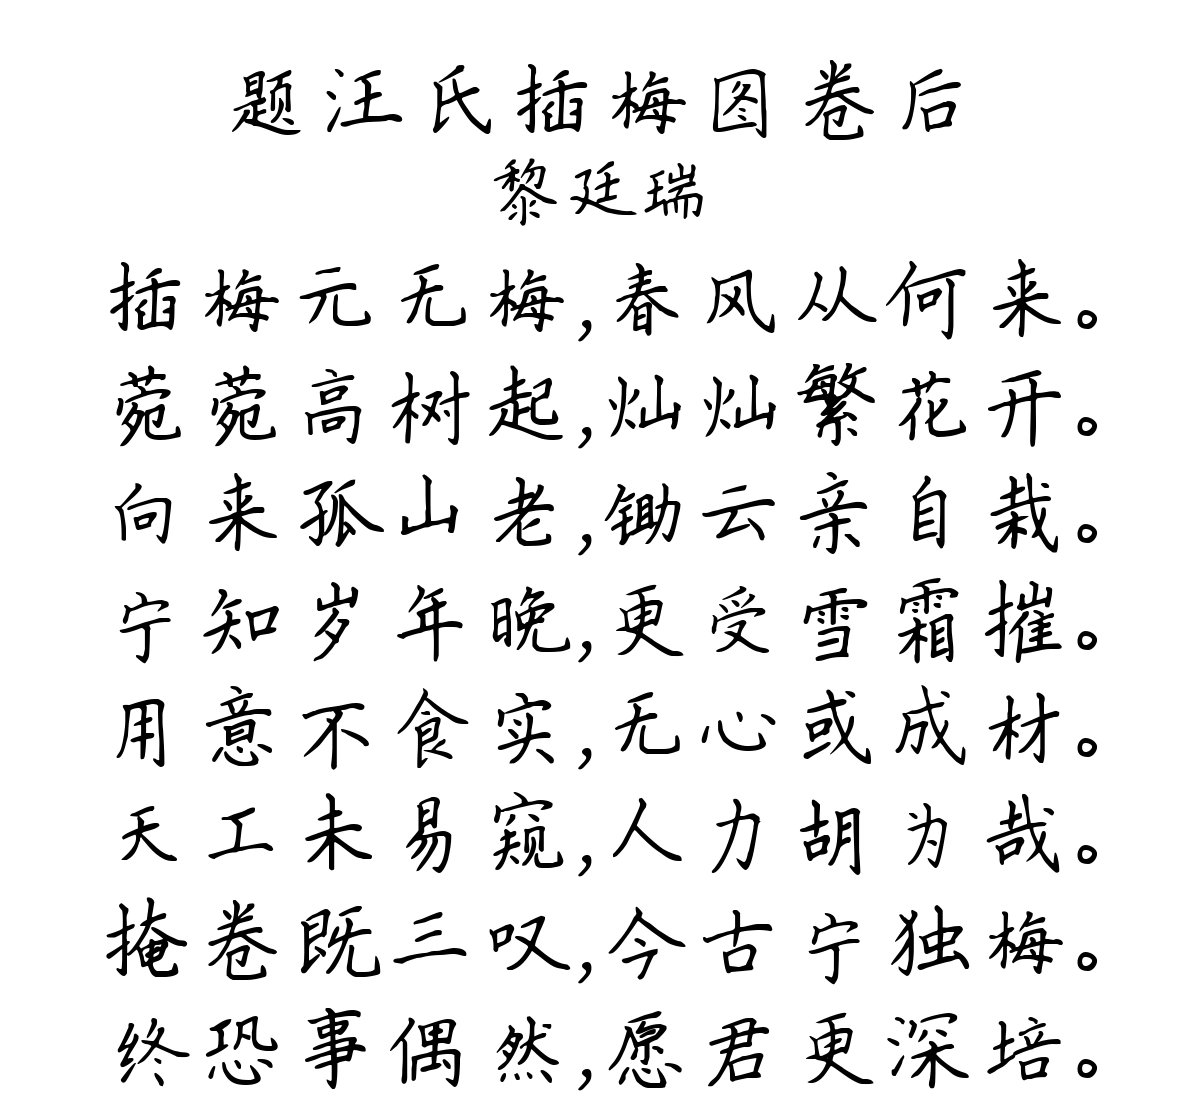 题汪氏插梅图卷后
黎廷瑞
插梅元无梅,春风从何来。
菀菀高树起,灿灿繁花开。
向来孤山老,锄云亲自栽。
宁知岁年晚,更受雪霜摧。
用意不食实,无心或成材。
天工未易窥,人力胡为哉。
掩卷既三叹,今古宁独梅。
终恐事偶然,愿君更深培。